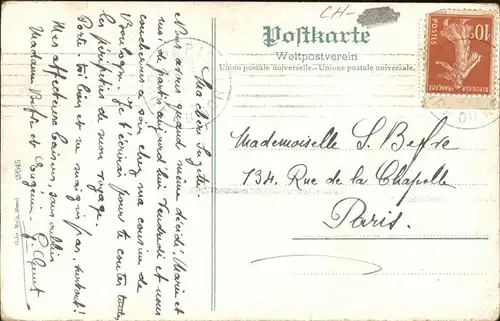 CH-
Postkarte
Weltpostverein
Union postale universelle. - Unione postale universale.
10
POSTES
REPUBLIQUE FRANÇAISE
Ma chère Suzette
Nous avons quand même décidé, Marie et
moi de partir aujourd'hui Vendredi et nous
coucherons ce soir chez ma cousine de
Boulogne. Je t'écrirai pour te conter toutes
les péripéties de mon voyage.
Porte-toi bien et ne maigris pas, surtout!
Mes affectueux baisers, sans oublier
Madame Beffre et Eugénie.
Mademoiselle S. Beffre
134, Rue de la Chapelle
Paris.